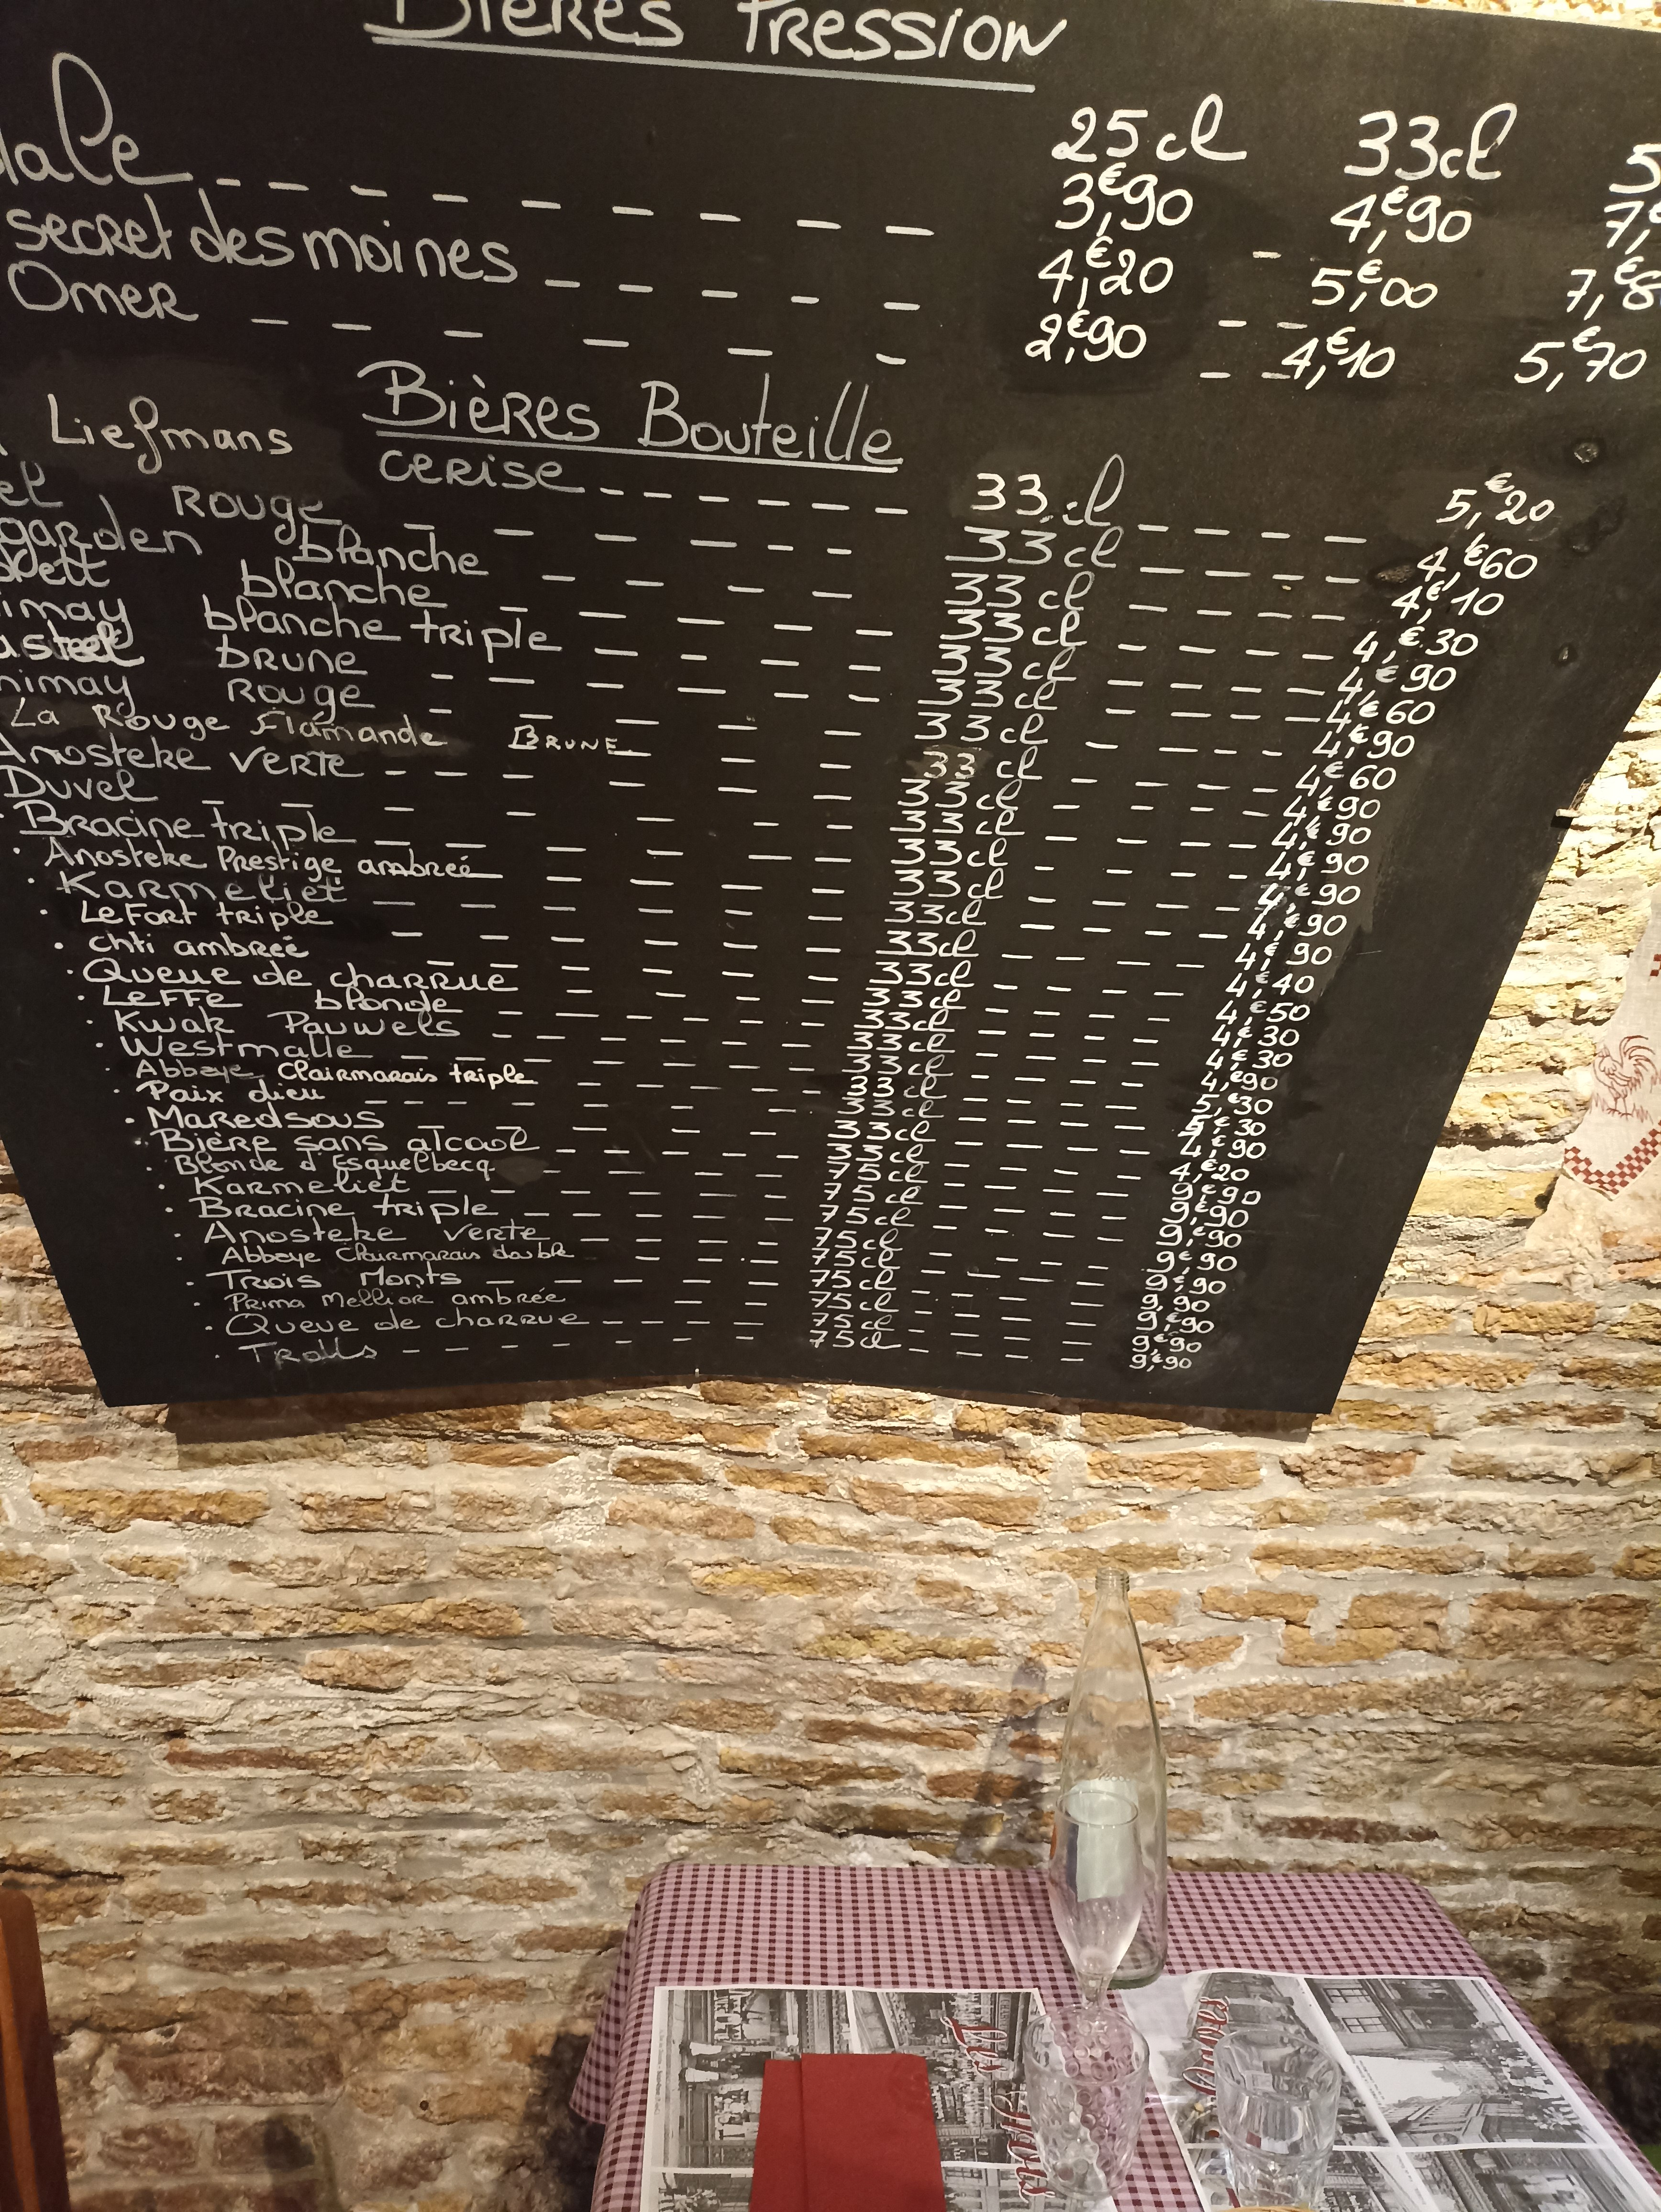 Bières Pression
25cl 33cl
3,€90 4,€90
secret des moines 4,€20 5,€00 7,€8
Omer 2,€90 4,€10 5,€70
Bières Bouteille
Liefmans cerise 33cl 5,€20
Rouge 33cl 4,€60
garden blanche 33cl 4,€10
blanche 33cl 4,€30
imay blanche triple 33cl 4,€90
brune 33cl 4,€60
himay Rouge 33cl 4,€90
La Rouge Flamande Brune 33cl 4,€60
Anosteke verte 33cl 4,€90
Duvel 33cl 4,€90
Bracine triple 33cl 4,€90
Anosteke Prestige ambreé 33cl 4,€90
Karmeliet 33cl 4,€90
LeFort triple 33cl 4,€90
chti ambreé 33cl 4,€40
Queue de charrue 33cl 4,€50
Leffe blonde 33cl 4,€30
Kwak Pauwels 33cl 4,€30
Westmalle 33cl 4,€90
Abbaye Clairmarais triple 33cl 5,€30
Paix dieu 33cl 5,€30
Maredsous 33cl 4,€90
Bière sans alcool 33cl 4,€20
Blonde d'Esquelbecq 75cl 9,€90
Karmeliet 75cl 9,€90
Bracine triple 75cl 9,€90
Anosteke verte 75cl 9,€90
Abbaye Clairmarais double 75cl 9,€90
Trois Monts 75cl 9,€90
Prima Mellior ambrée 75cl 9,€90
Queue de charrue 75cl 9,€90
Trolls 75cl 9,€90